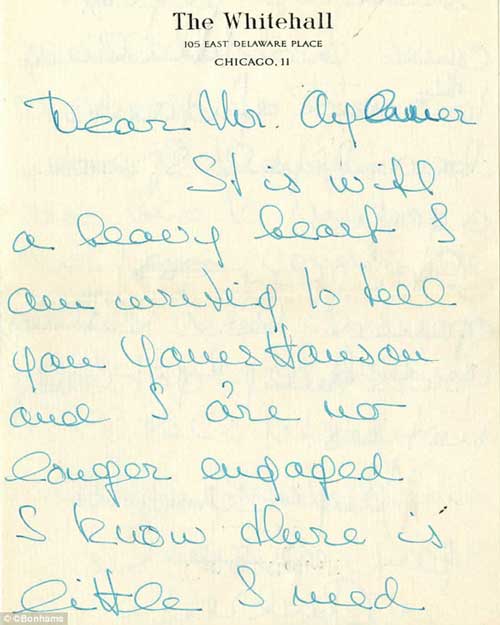 The Whitehall
105 EAST DELAWARE PLACE
CHICAGO, 11
Dear Mr.
It is with
a heavy heart I
am writing to tell
you James Hanson
and I are no
longer engaged
I know there is
little I need
©Bonhams